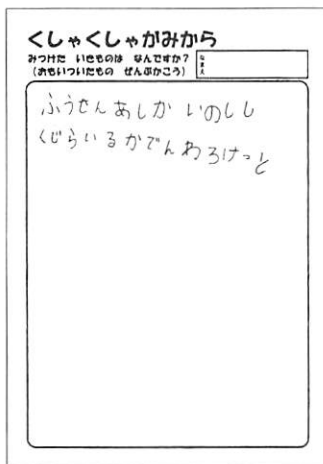 くしゃくしゃがみから
みつけた いきものは なんですか?
(おもいついたもの ぜんぶかこう)
なまえ
ふうせんあしか いのしし
くじらいるかでんわろけっと